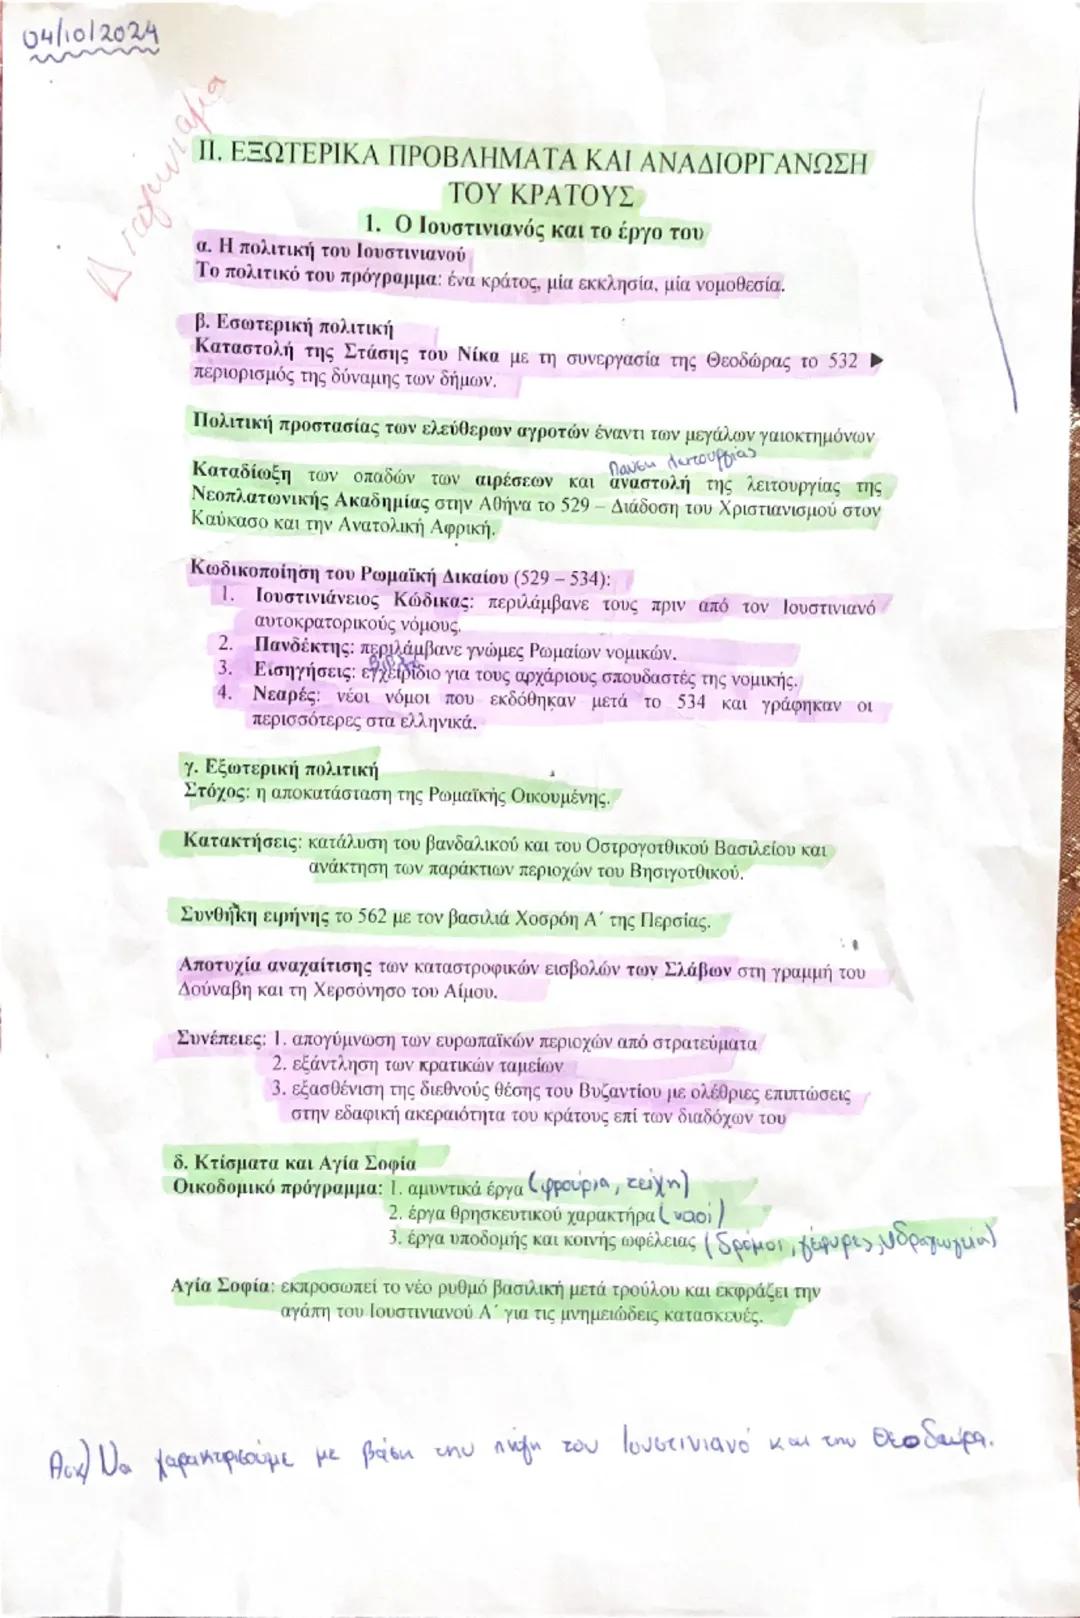 04/10/2024
Διαγώνισμα
ΙΙ. ΕΞΩΤΕΡΙΚΑ ΠΡΟΒΛΗΜΑΤΑ ΚΑΙ ΑΝΑΔΙΟΡΓΑΝΩΣΗ
ΤΟΥ ΚΡΑΤΟΥΣ
1. Ο Ιουστινιανός και το έργο του
α. Η πολιτική του Ιουστινιανού
Το πολιτικό του πρόγραμμα: ένα κράτος, μία εκκλησία, μία νομοθεσία.
β. Εσωτερική πολιτική
Καταστολή της Στάσης του Νίκα με τη συνεργασία της Θεοδώρας το 532 ▶
περιορισμός της δύναμης των δήμων.
Πολιτική προστασίας των ελεύθερων αγροτών έναντι των μεγάλων γαιοκτημόνων
Παύση λειτουργίας
Καταδίωξη των οπαδών των αιρέσεων και αναστολή της λειτουργίας της
Νεοπλατωνικής Ακαδημίας στην Αθήνα το 529 – Διάδοση του Χριστιανισμού στον
Καύκασο και την Ανατολική Αφρική.
Κωδικοποίηση του Ρωμαϊκή Δικαίου (529 – 534):
1. Ιουστινιάνειος Κώδικας: περιλάμβανε τους πριν από τον Ιουστινιανό
αυτοκρατορικούς νόμους.
2. Πανδέκτης: περιλάμβανε γνώμες Ρωμαίων νομικών.
βιβλίο
3. Εισηγήσεις: εγχειρίδιο για τους αρχάριους σπουδαστές της νομικής.
4. Νεαρές: νέοι νόμοι που εκδόθηκαν μετά το 534 και γράφηκαν οι
περισσότερες στα ελληνικά.
γ. Εξωτερική πολιτική
Στόχος: η αποκατάσταση της Ρωμαϊκής Οικουμένης.
Κατακτήσεις: κατάλυση του βανδαλικού και του Οστρογοτθικού Βασιλείου και
ανάκτηση των παράκτιων περιοχών του Βησιγοτθικού.
Συνθήκη ειρήνης το 562 με τον βασιλιά Χοσρόη Α΄ της Περσίας.
Αποτυχία αναχαίτισης των καταστροφικών εισβολών των Σλάβων στη γραμμή του
Δούναβη και τη Χερσόνησο του Αίμου.
Συνέπειες: 1. απογύμνωση των ευρωπαϊκών περιοχών από στρατεύματα
2. εξάντληση των κρατικών ταμείων
3. εξασθένιση της διεθνούς θέσης του Βυζαντίου με ολέθριες επιπτώσεις
στην εδαφική ακεραιότητα του κράτους επί των διαδόχων του
δ. Κτίσματα και Αγία Σοφία
Οικοδομικό πρόγραμμα: 1. αμυντικά έργα (φρούρια, τείχη)
2. έργα θρησκευτικού χαρακτήρα (ναοί)
3. έργα υποδομής και κοινής ωφέλειας (δρόμοι, γέφυρες, υδραγωγεία)
Αγία Σοφία: εκπροσωπεί το νέο ρυθμό βασιλική μετά τρούλου και εκφράζει την
αγάπη του Ιουστινιανού Α΄ για τις μνημειώδεις κατασκευές.
Ασκ) Να χαρακτηρίσουμε με βάση την πηγή τον Ιουστινιανό και την Θεοδώρα.